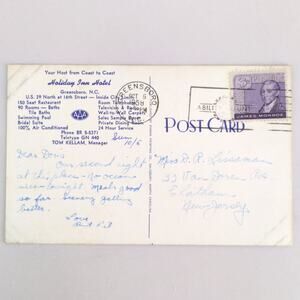 Your Host from Coast to Coast
Holiday Inn Hotel
Greensboro, N.C.
U.S. 29 North at 16th Street — Inside City
150 Seat Restaurant
Room Telephones
90 Rooms — Baths
Television & Radio
Tile Baths
Wall-to-Wall Carpet
Swimming Pool
Sales Sample Room
Bridal Suite
Private Dining Room
100% Air Conditioned
24 Hour Service
AAA
Phone BR 5-5371
Teletype GN 440
TOM KELLAM, Manager
GREENSBORO
OCT 6
1958
N.C.
JAMES MONROE
POST CARD
Sun.
10/5
Dear Doris
Our second night
at this place - no ocean
nice tonight. Meals good
so far. Scenery getting
better.
Love
Mrs D. R. Lusseman
33 Van Doren Ave
E. Chatham
New Jersey